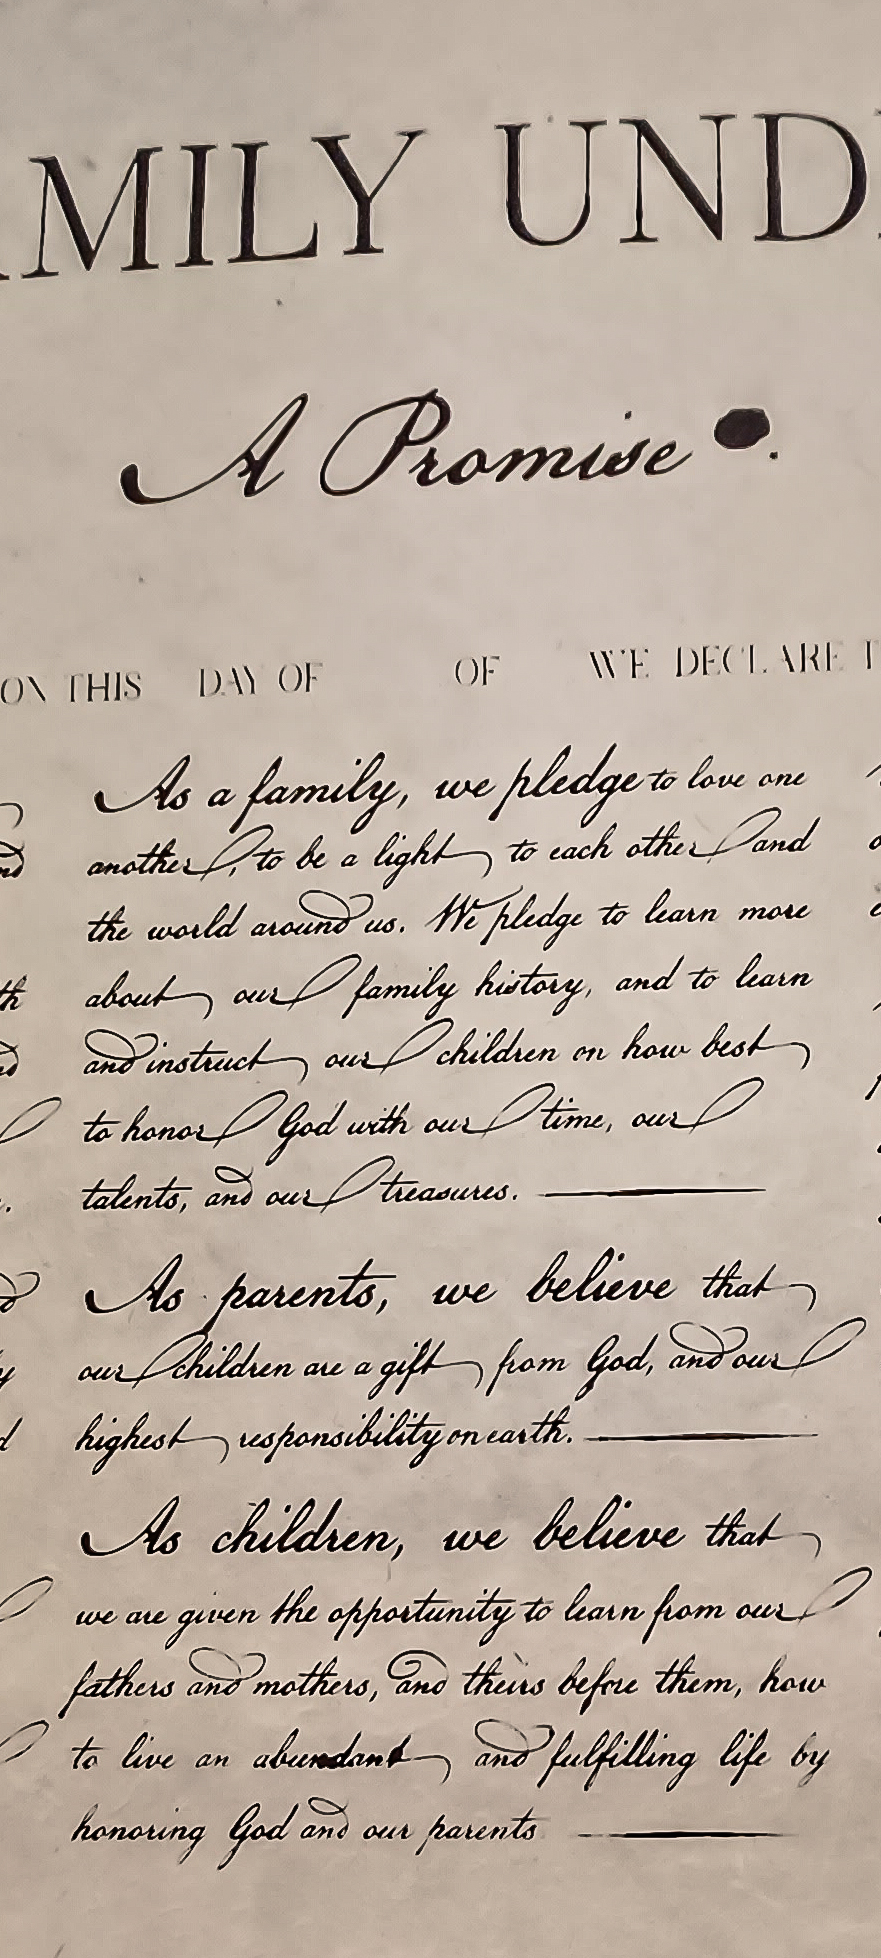 AMILY UND
A Promise .
ON THIS DAY OF OF WE DECLARE T
As a family, we pledge to love one
another, to be a light to each other and
the world around us. We pledge to learn more
about our family history, and to learn
and instruct our children on how best
to honor God with our time, our
talents, and our treasures.
As parents, we believe that
our children are a gift from God, and our
highest responsibility on earth.
As children, we believe that
we are given the opportunity to learn from our
fathers and mothers, and theirs before them, how
to live an abundant and fulfilling life by
honoring God and our parents